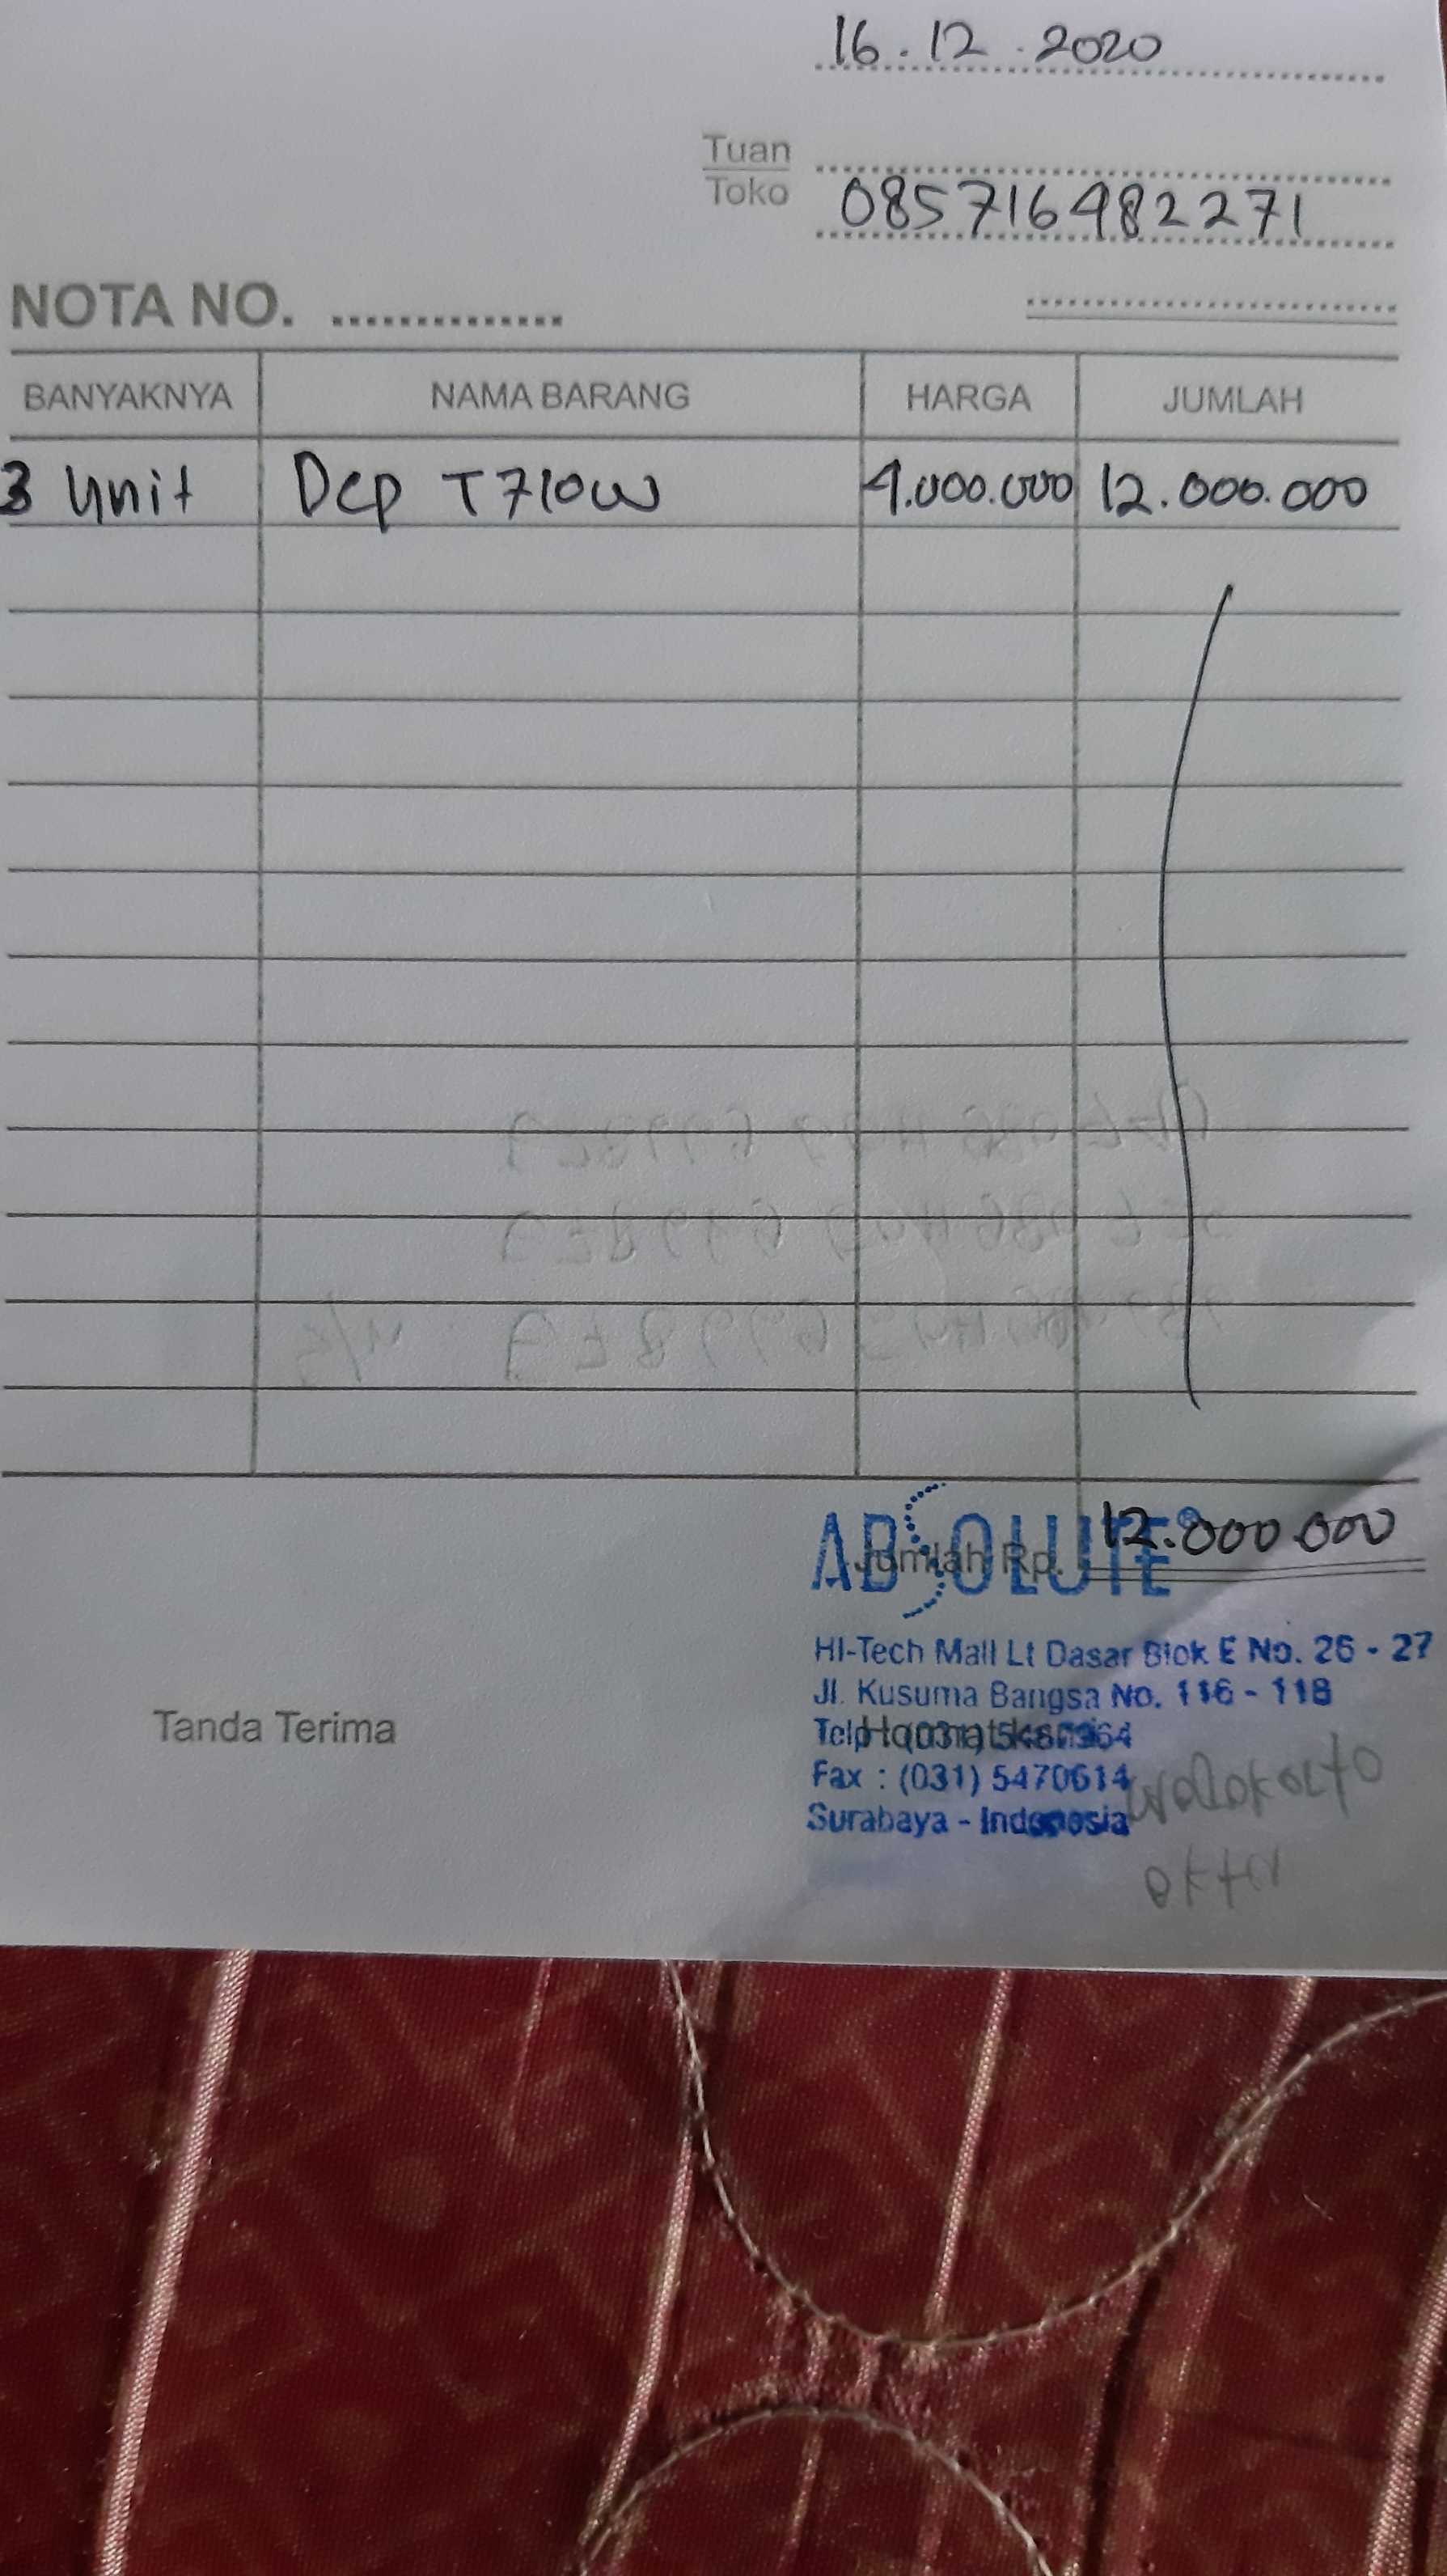 16.12.2020
Tuan
Toko
085716482271
NOTA NO. ..............
BANYAKNYA NAMA BARANG HARGA JUMLAH
3 Unit Dcp T710W 4.000.000 12.000.000
ABSOLUTE®
Jumlah Rp. 12.000.000
HI-Tech Mall Lt Dasar Blok E No. 26 - 27
Jl. Kusuma Bangsa No. 116 - 118
Tanda Terima
Telp : (031)
Fax : (031) 5470614
Surabaya - Indonesia